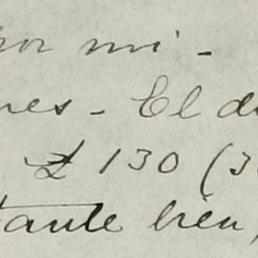 por mi -
nes - El d
£ 130 (3
tante bien,